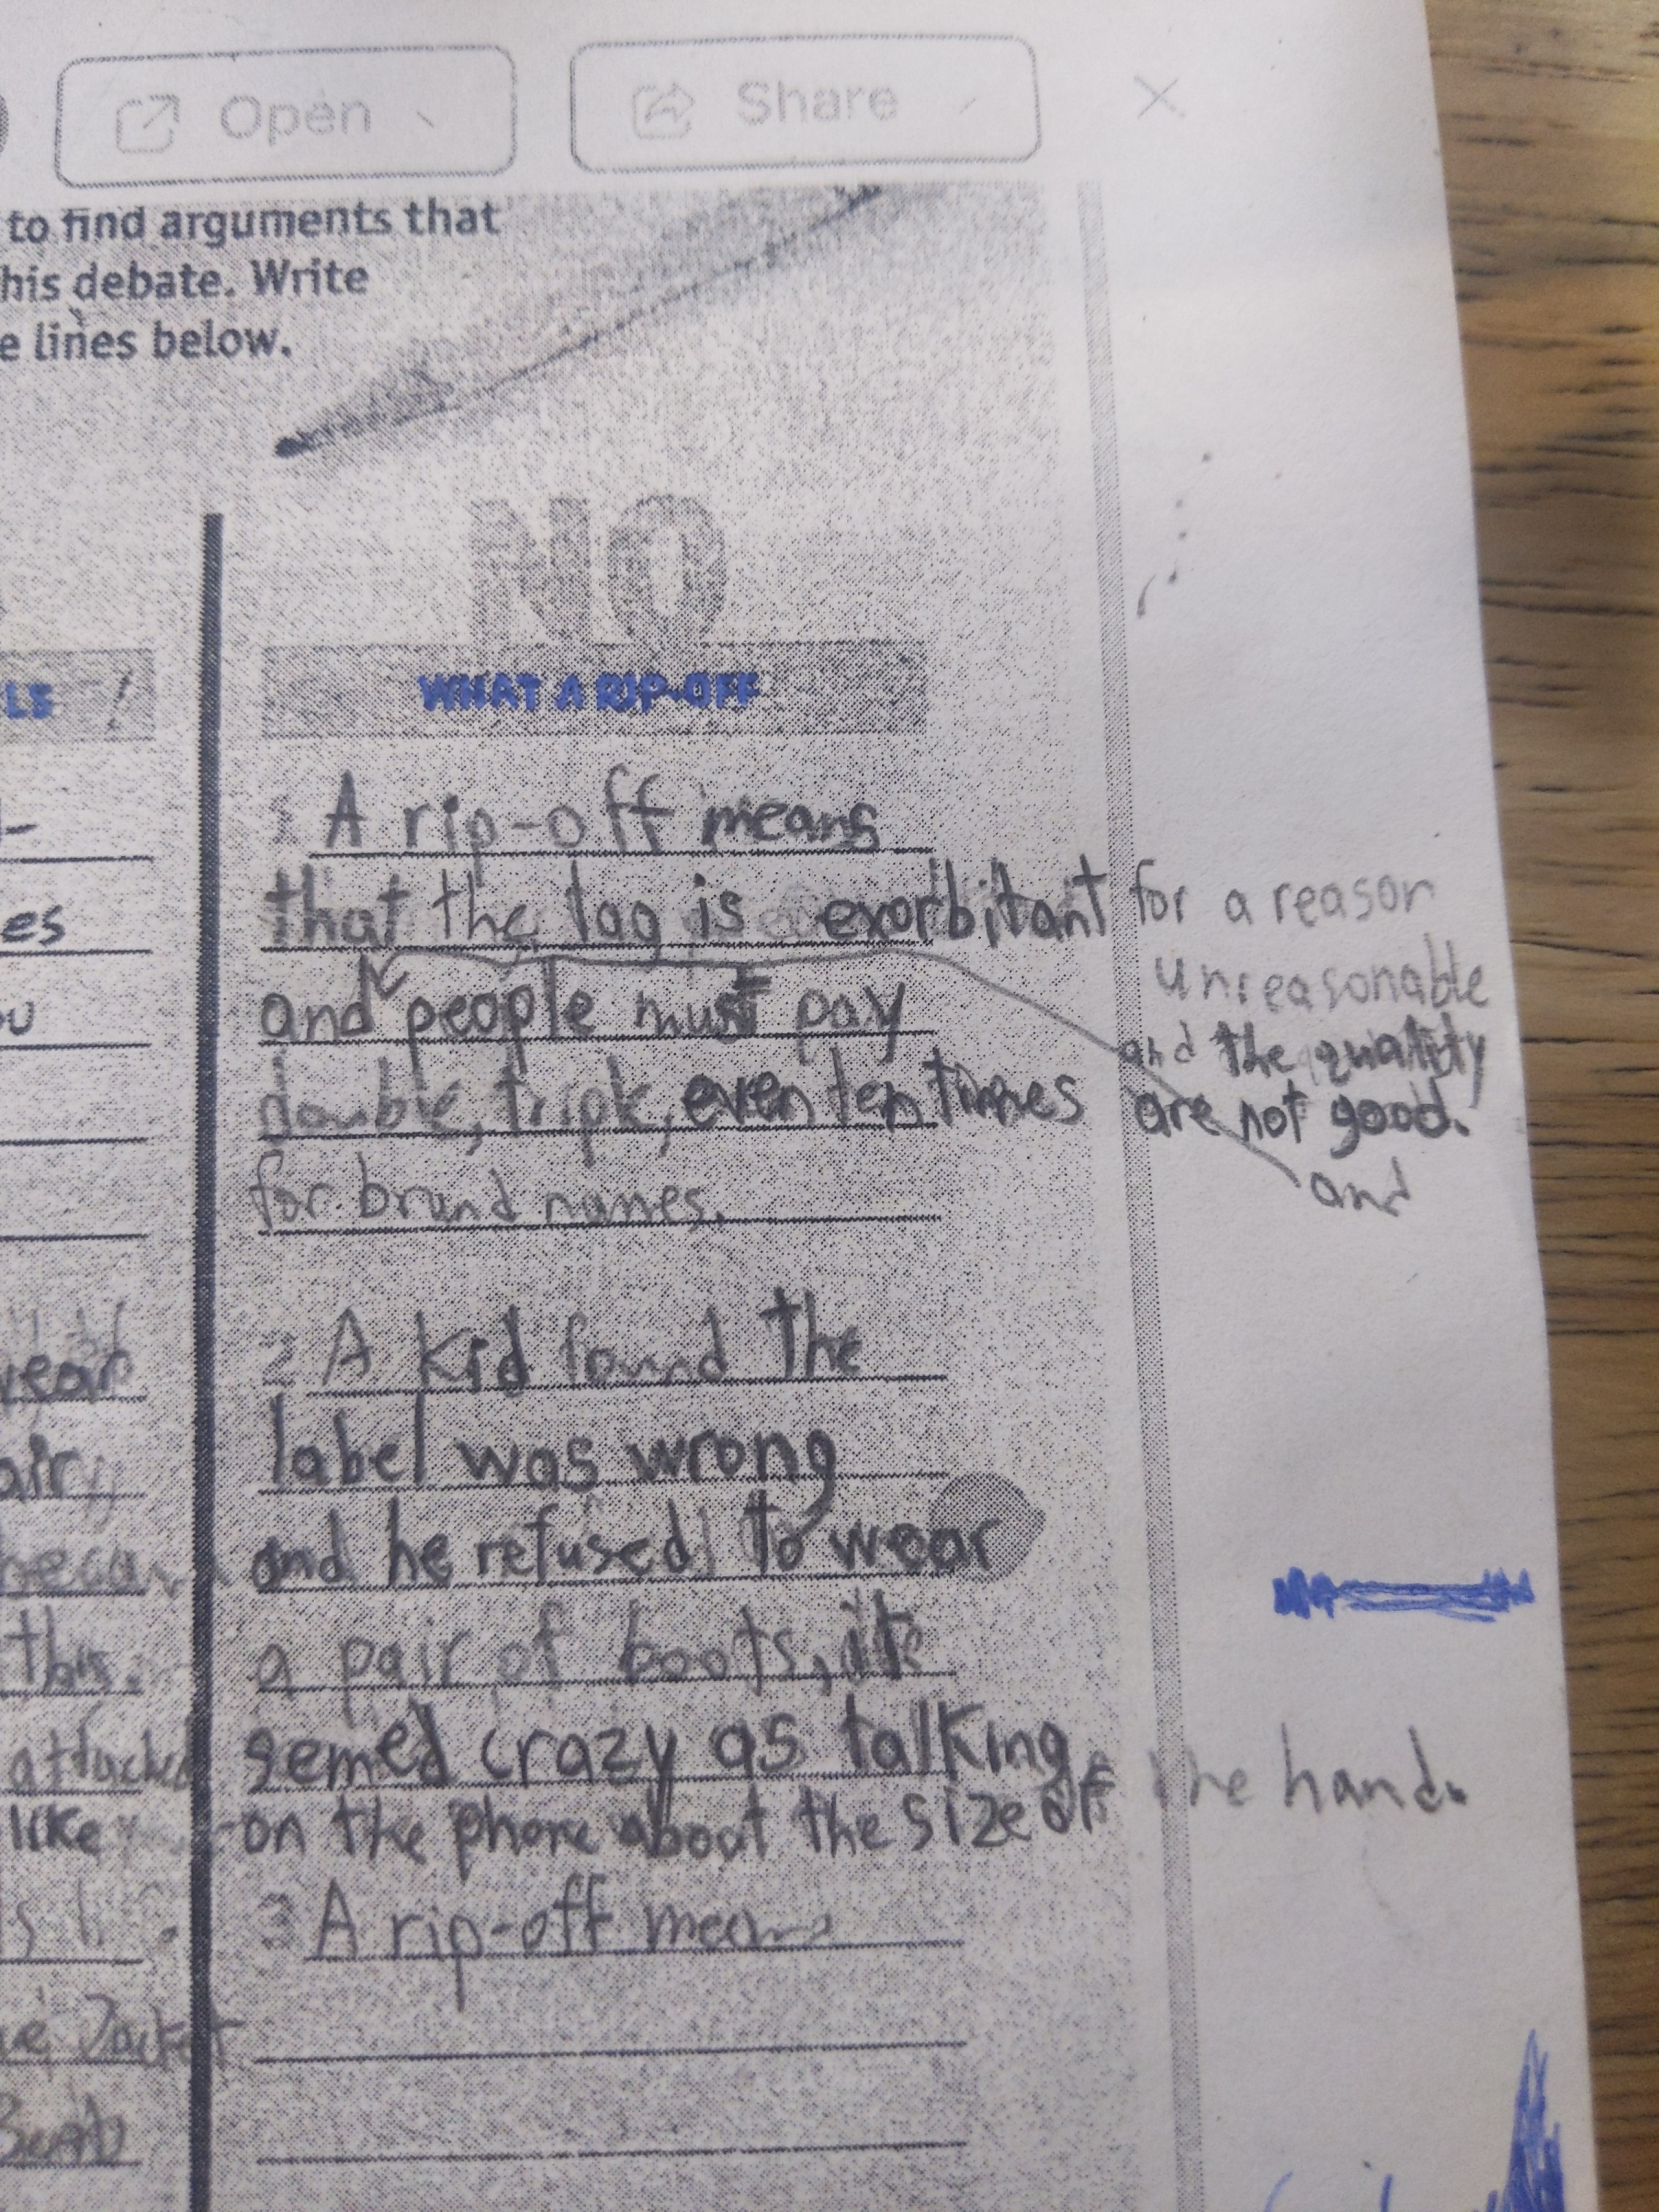 Open
Share
to find arguments that
his debate. Write
e lines below.
NO
LS
WHAT A RIP-OFF
1 A rip-off means
that the tag is exorbitant for a reason
unreasonable
and people must pay
and the quality
double, triple, even ten times
are not good.
and
for brand names.
es
2 A kid found the
label was wrong
and he refused to wear
a pair of boots, it
semed crazy as talking
on the phone about the size of the hand.
3 A rip-off means
wear
air,
this.
attached
like
Jacket